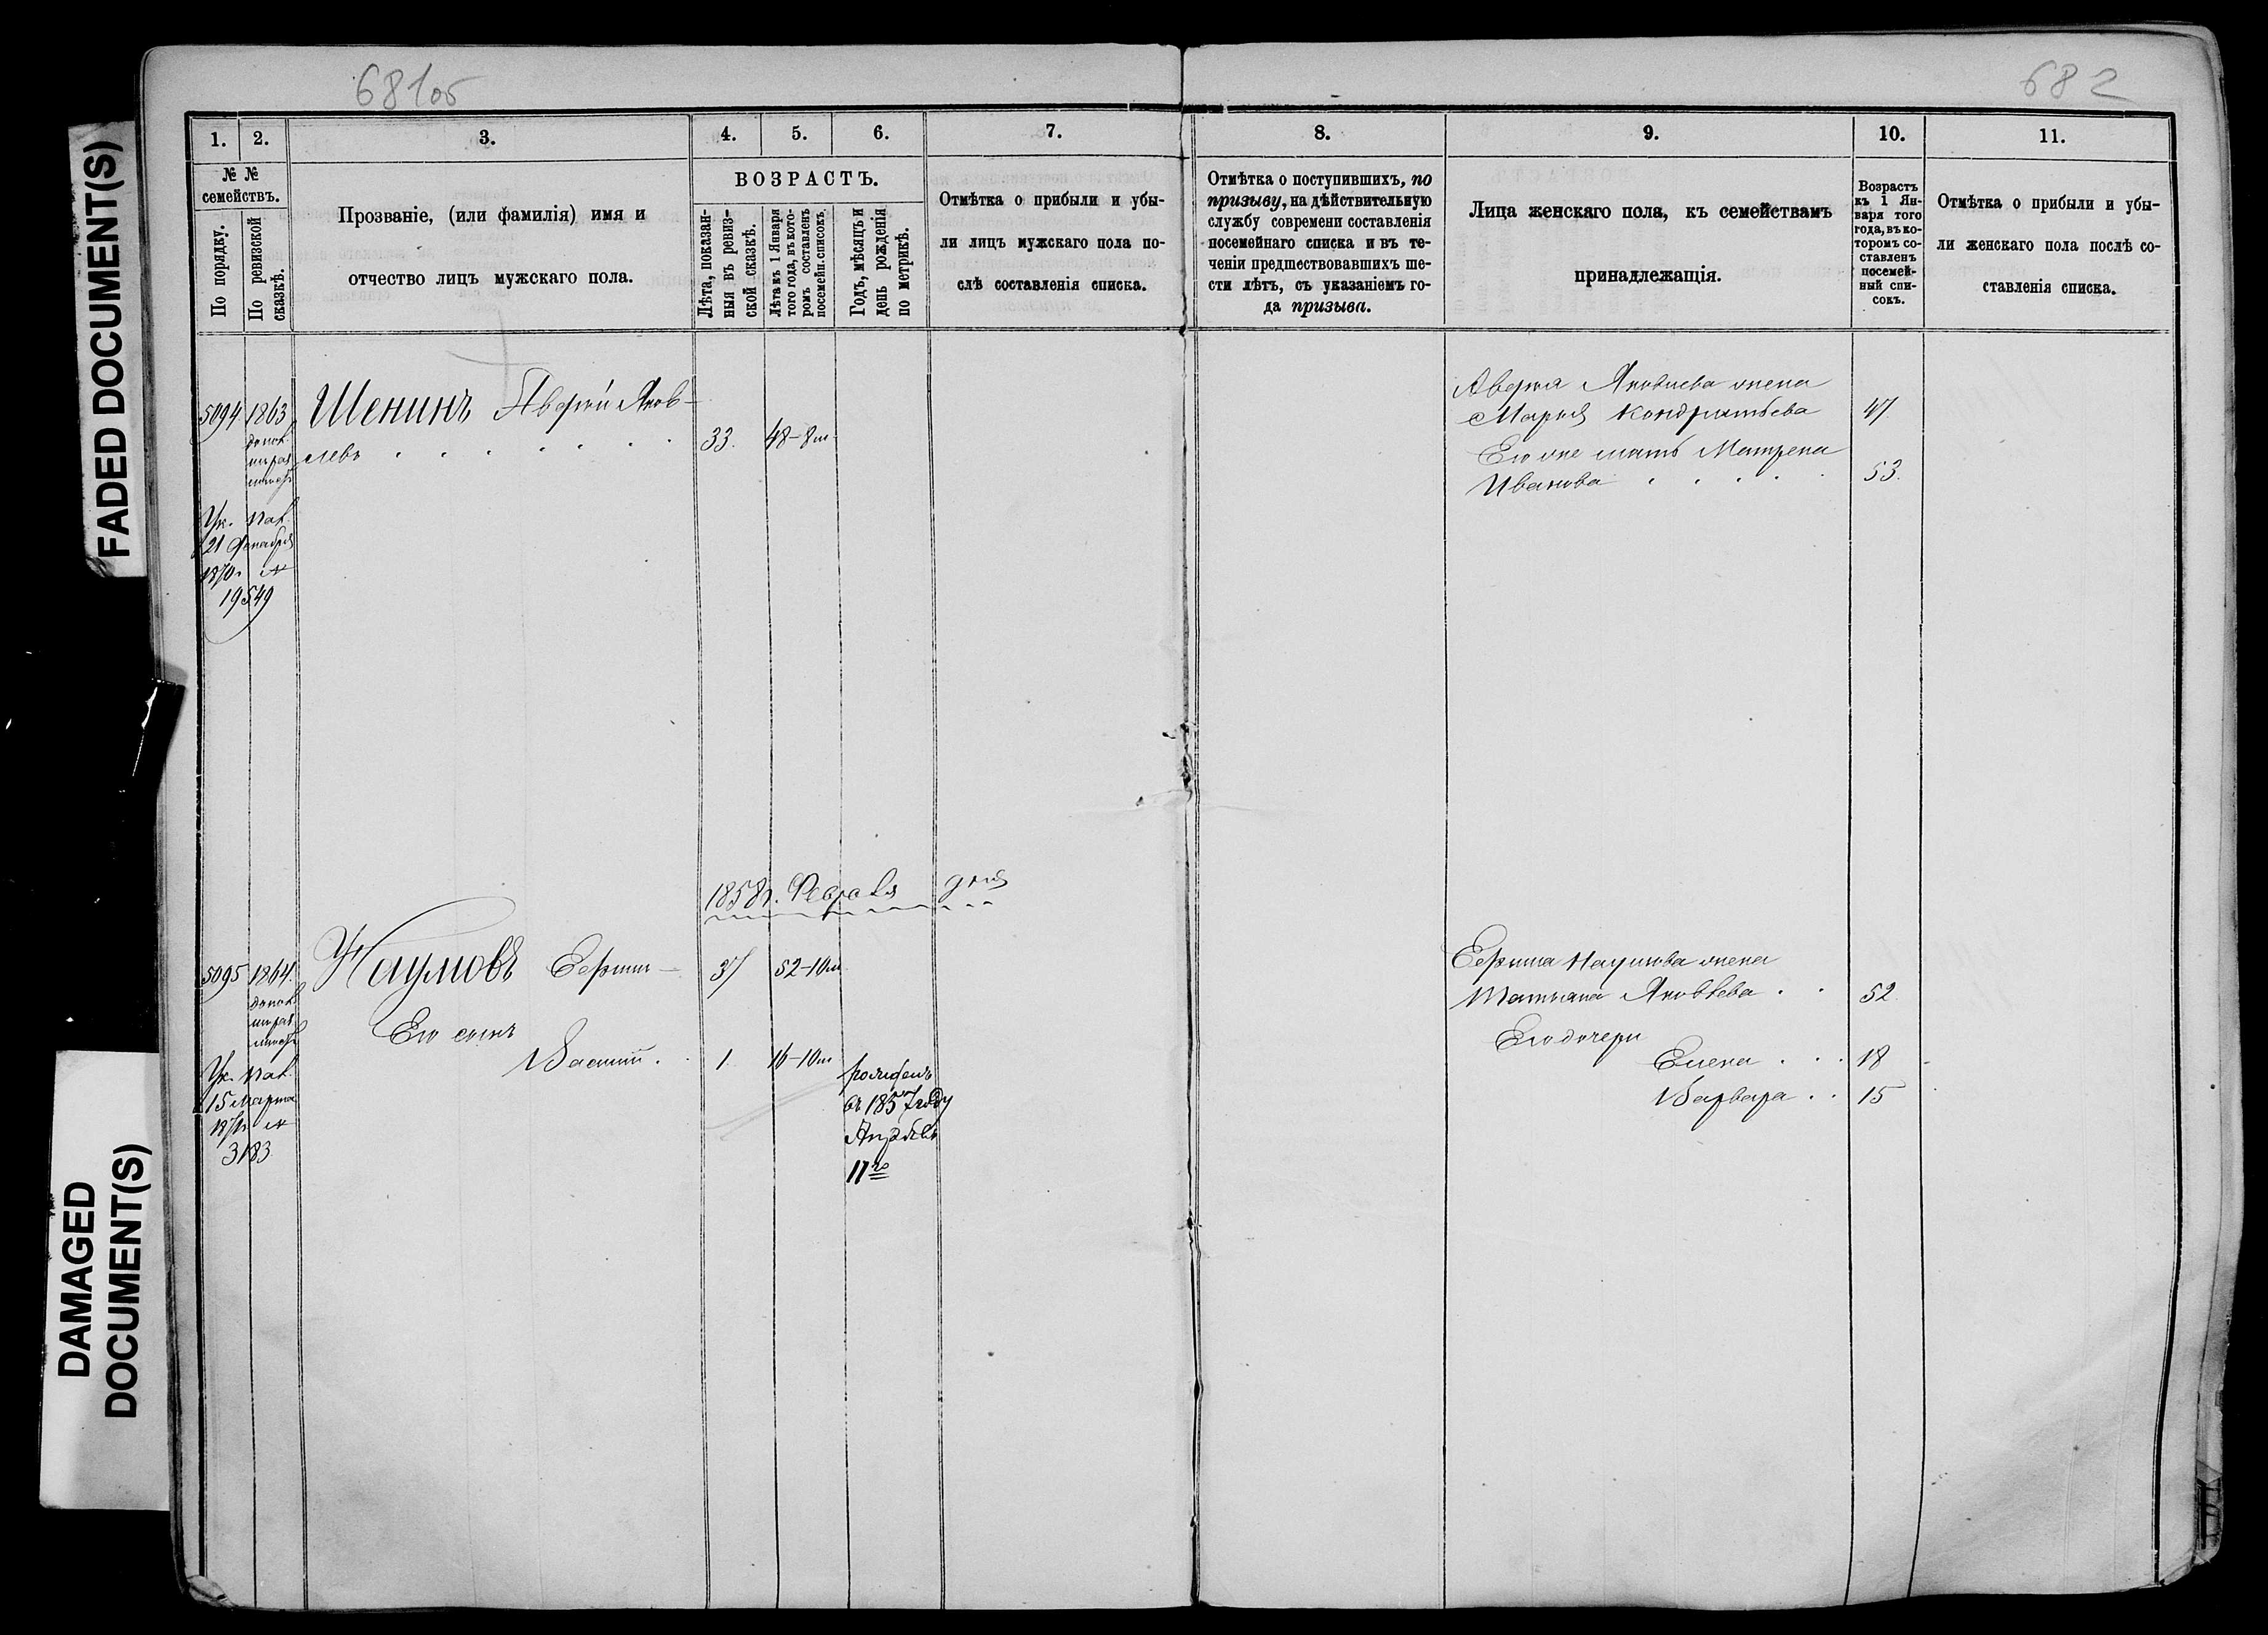 681об
682
FADED DOCUMENT(S)
DAMAGED
DOCUMENT(S)
1.
2.
3.
4.
5.
6.
7.
8.
9.
10.
11.
№ №
семействъ.
По порядку.
По ревизской
сказкѣ.
Прозваніе, (или фамилія) имя и
отчество лицъ мужскаго пола.
ВОЗРАСТЪ.
Лѣта, показан-
ныя въ ревиз-
ской сказкѣ.
Лѣта къ 1 Января
того года, въ кото-
ромъ составленъ
посемейн. списокъ.
Годъ, мѣсяцъ и
день рожденія
по метрикѣ.
Отмѣтка о прибыли и убы-
ли лицъ мужскаго пола по-
слѣ составленія списка.
Отмѣтка о поступившихъ, по
призыву, на дѣйствительную
службу современи составленія
посемейнаго списка и въ те-
ченіи предшествовавшихъ ше-
сти лѣтъ, съ указаніемъ го-
да призыва.
Лица женскаго пола, къ семействамъ
принадлежащія.
Возрастъ
къ 1 Ян-
варя того
года, въ ко-
торомъ со-
ставленъ
посемей-
ный спи-
сокъ.
Отмѣтка о прибыли и убы-
ли женскаго пола послѣ со-
ставленія списка.
5094 1863 Шенинъ Аверкій Яков-
левъ 33. 48-8м.
Ук. Пал.
21 Декабря
1870г. №
19549
Аверкія Яковлева жена
Марья Кондратьева 47
Его же мать Матрена
Иванова 53.
1858г. Февраля дня
5095 1864. Наумовъ Ефимъ 37 52-10м
Его сынъ
Василій. 1. 16-10м
рожденъ
въ 1857 году
Апрѣля
17го
Ук. Пал.
15 Марта
1871г. №
3183
Ефима Наумова жена
Татьяна Яковлева. 52.
Его дочери
Елена 18
Варвара 15